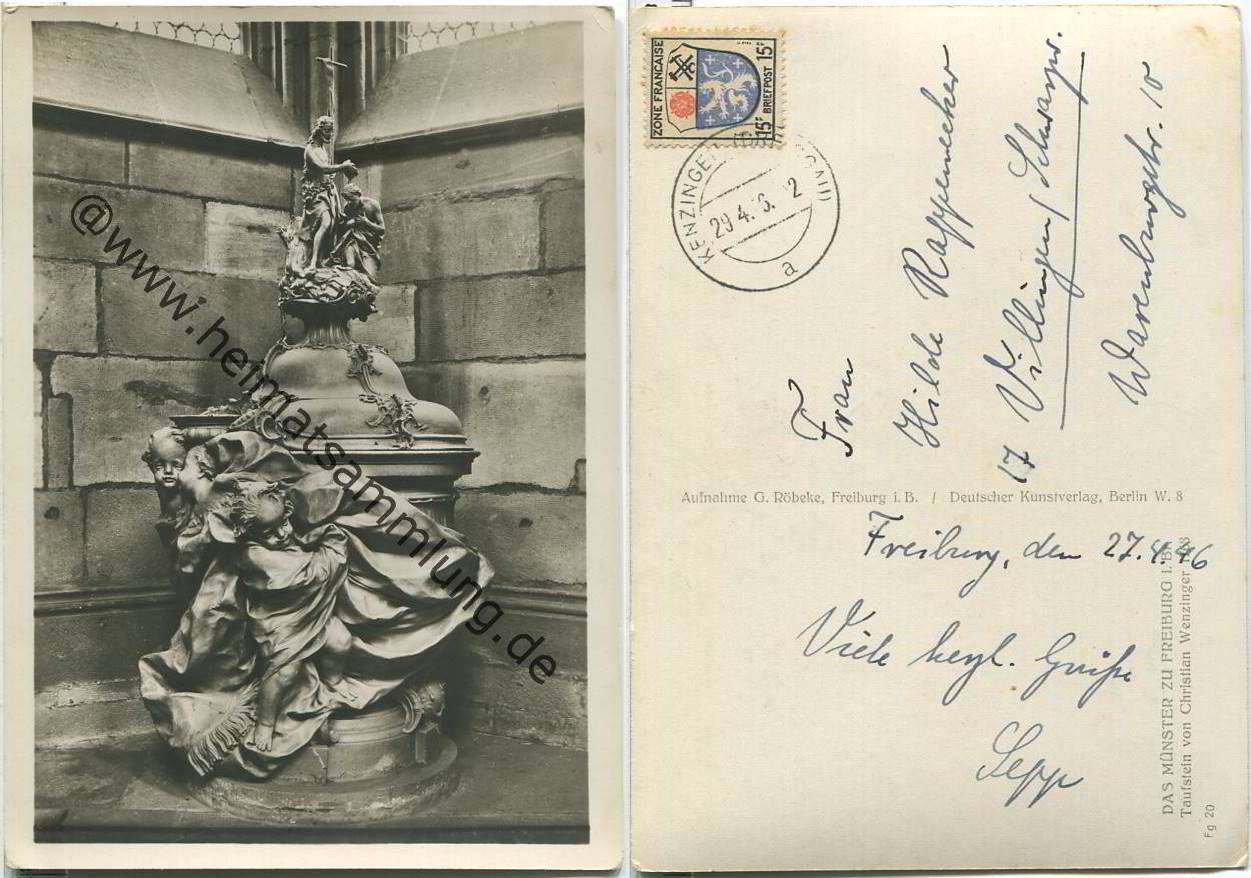 @www.heimatsammlung.de
ZONE FRANÇAISE
BRIEFPOST
15 PF
15 PF
KENZINGEN
29.4.
a
Frau
Hilde Rappenecker
17 Villingen/Schwarzw.
Warenburgstr. 10
Aufnahme G. Röbeke, Freiburg i. B. / Deutscher Kunstverlag, Berlin W. 8
Freiburg, den 27.4.46
Viele herzl. Grüße
Sepp
DAS MÜNSTER ZU FREIBURG i. B.
Taufstein von Christian Wenzinger
Fg 20